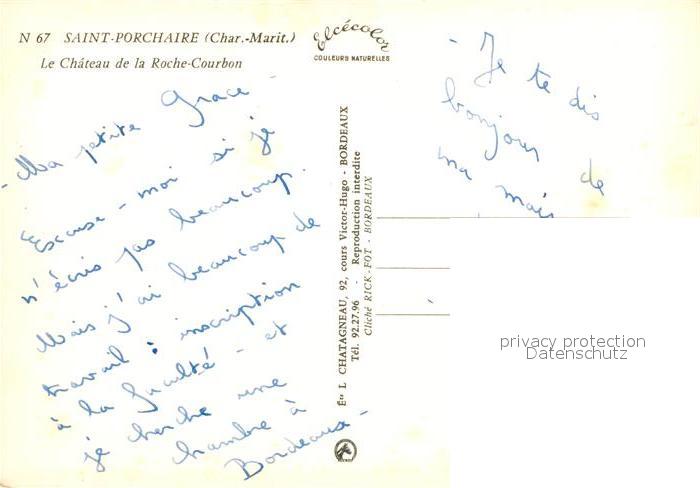 N 67 SAINT-PORCHAIRE (Char.-Marit.)
Le Château de la Roche-Courbon
Elcécolor
COULEURS NATURELLES
- Ma petite Grace -
Excuse-moi si je
n'écris pas beaucoup.
Mais j'ai beaucoup de
travail : inscription
à la faculté - et
je cherche une
chambre à
Bordeaux -
Éts L CHATAGNEAU, 92, cours Victor-Hugo - BORDEAUX
Tél. 92.27.96 - Reproduction interdite
Cliché RICK-FOT - BORDEAUX
- Je te dis
bonjour de
ma mais
privacy protection
Datenschutz